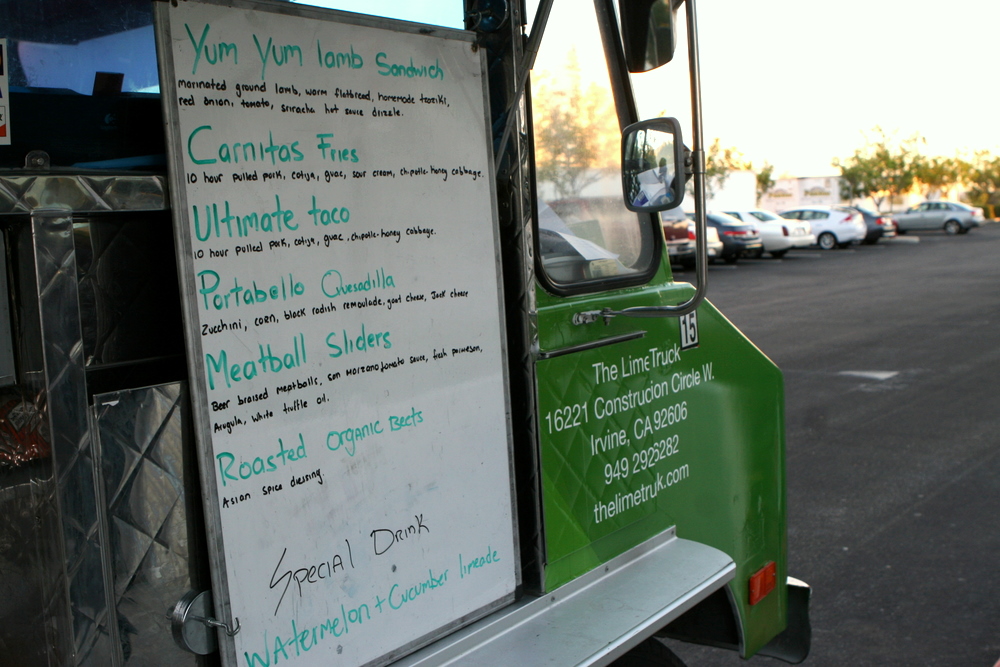 Yum Yum lamb Sandwich
marinated ground lamb, warm flatbread, homemade tzaziki,
red onion, tomato, sriracha hot sauce drizzle.
Carnitas Fries
10 hour pulled pork, cotija, guac, sour cream, chipotle-honey cabbage.
Ultimate taco
10 hour pulled pork, cotija, guac, chipotle-honey cabbage.
Portabello Quesadilla
Zucchini, corn, black radish remoulade, goat cheese, Jack cheese
Meatball Sliders
Beer braised meatballs, San Marzano tomato sauce, fresh parmesan,
Arugula, white truffle oil.
Roasted Organic Beets
Asian spice dressing.
Special Drink
Watermelon + Cucumber limeade
15
The LimeTruck
16221 Construcion Circle W.
Irvine, CA 92606
949 2925282
thelimetruk.com